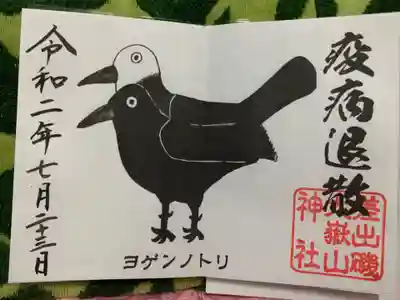 疫病退散
差出磯
大嶽山
神社
ヨゲンノトリ
令和二年七月二十三日